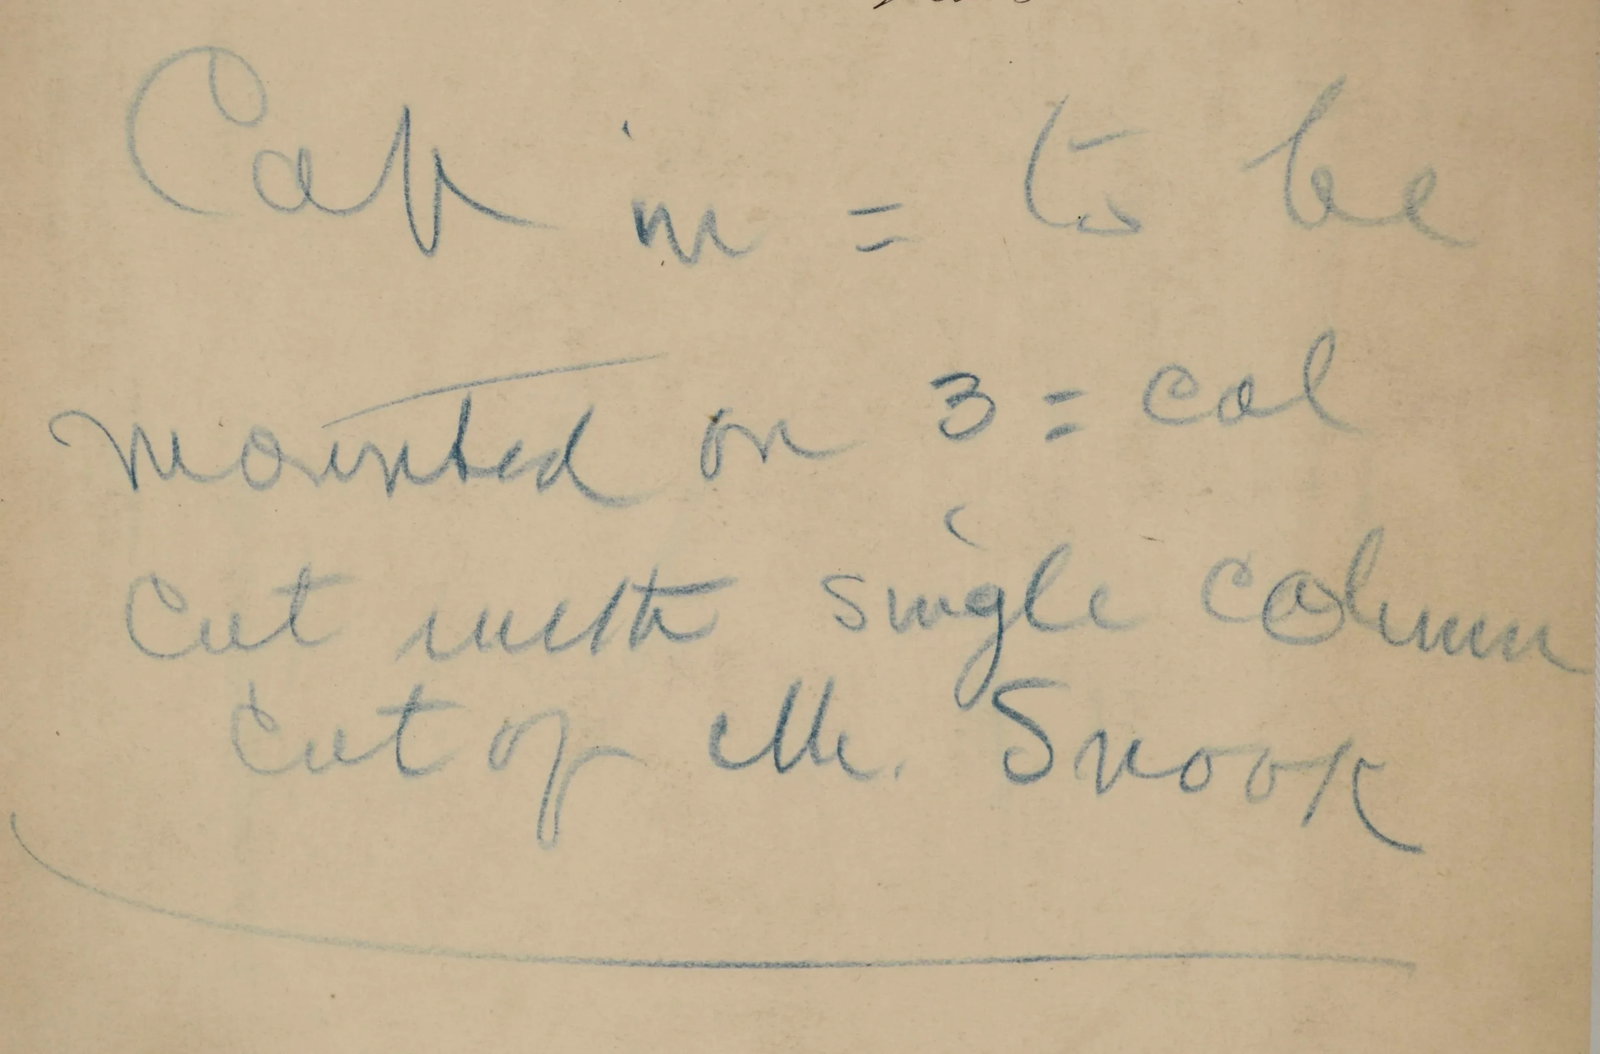 Cab in = to be
mounted on 3 = col
cut with single column
cut of Mr. Snook